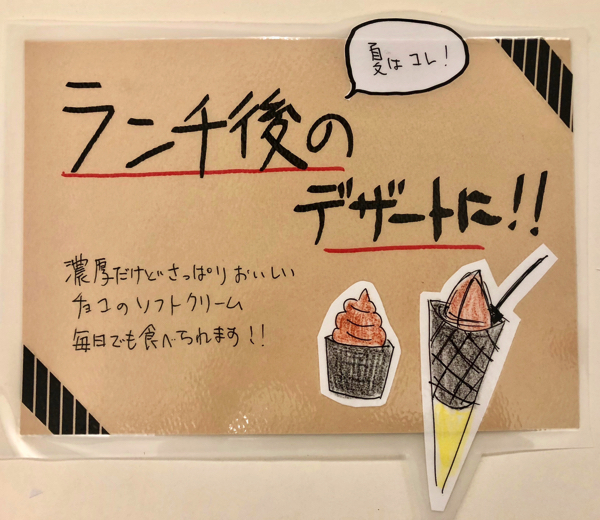 夏はコレ!
ランチ後の
デザートに!!
濃厚だけどさっぱりおいしい
チョコのソフトクリーム
毎日でも食べられます!!